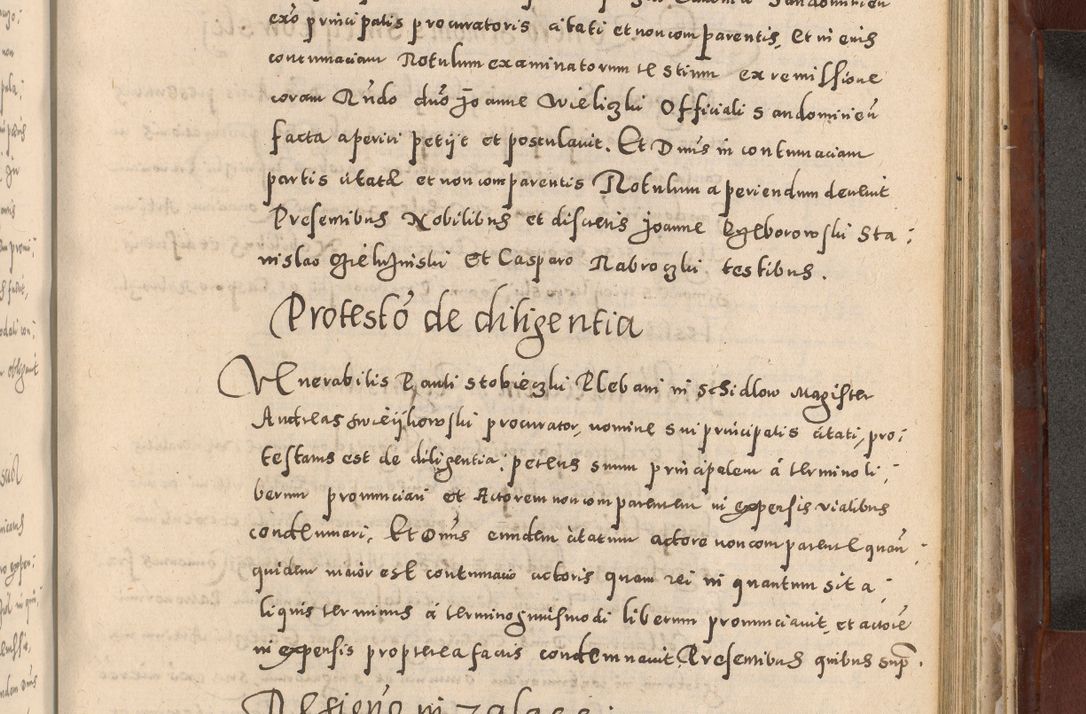 exō principalis procuratoris citati et non comparentis, Et in eius
contumaciam Rotulum examinatorum testium ex remissione
coram Rñdo dño Joanne Wieliczki Officiali Sandomirieñ
facta aperiri petijt et postulavit. Et Dnus in contumaciam
partis citatæ et non comparentis Rotulum aperiendum decrevit
Presentibus Nobilibus et discretis Joanne Sta:
nislao et Casparo Nabroczki testibus.
Protestō de diligentia
Venerabilis Pauli Stobieczki Plebani in Schidlow Magister
Andreas procurator, nomine sui principalis citati, pro:
testatus est de diligentia: petens suum principalem á termino li:
berum pronunciari et Actorem non comparentem in expensis vialibus
condemnari, Et Dnus eundem citatum actore non comparente quan:
quidem maior est contumacia actoris quam rei in quantum sit a:
liquis terminus á termino huiusmodi liberum pronunciavit, et actorē
in expensis propterea factis condemnavit, Presentibus quibus sup̃.
in